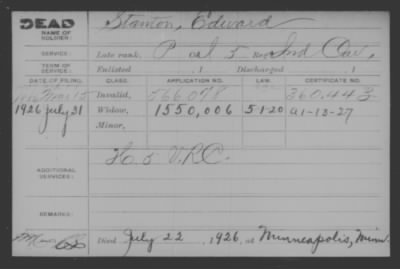 DEAD Stanton, Edward
NAME OF
SOLDIER:
SERVICE: Late rank, P Co. I 5 Reg. Ind Cav.
TERM OF
SERVICE: Enlisted , 1 Discharged , 1
DATE OF FILING. CLASS. APPLICATION NO. LAW. CERTIFICATE NO.
Invalid, 566078 360.443
1926 July 31 Widow, 1550,006 5-1-20 A1-13-27
Minor,
ADDITIONAL
SERVICES: H. 5 V.R.C.
REMARKS:
Died July 22, 1926, at Minneapolis, Minn.